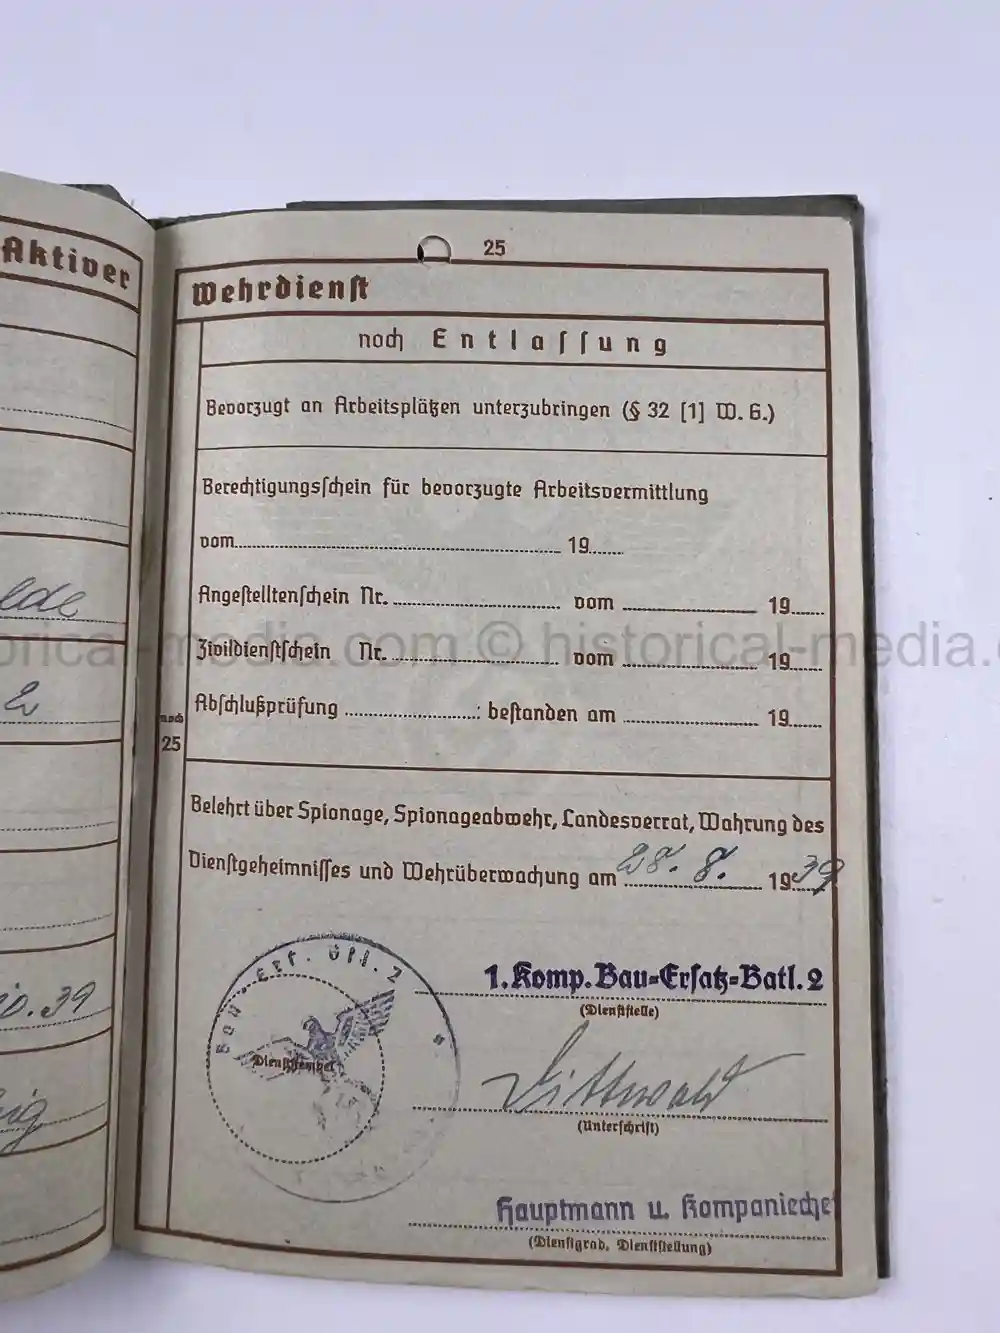 Aktiver
elde
2
10.39
ig
25
Wehrdienst
noch Entlassung
Bevorzugt an Arbeitsplätzen unterzubringen (§ 32 [1] W. G.)
Berechtigungsschein für bevorzugte Arbeitsvermittlung
vom 19
Angestelltenschein Nr. vom 19
historical-media.com © historical-media.
Zivildienstschein Nr. vom 19
Abschlußprüfung : bestanden am 19
noch
25
Belehrt über Spionage, Spionageabwehr, Landesverrat, Wahrung des
Dienstgeheimnisses und Wehrüberwachung am 28. 8. 1939
Bau - Ers. Btl. 2
1. Komp. Bau=Ersatz=Batl. 2
(Dienststelle)
Dienststempel
Dittwald
(Unterschrift)
Hauptmann u. Kompanieche
(Dienstgrad, Dienststellung)